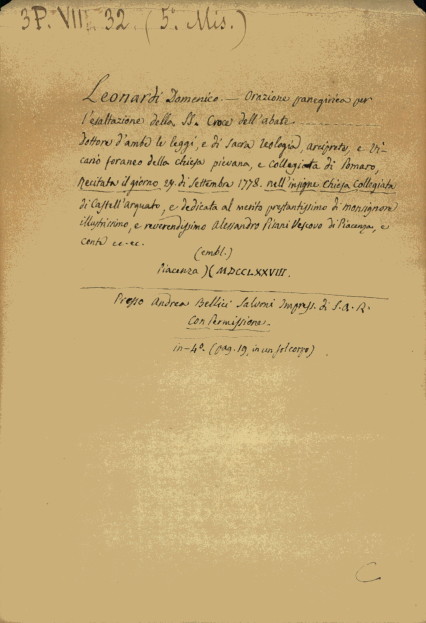 3P. VIII. 32. (5°. Mis.)
Leonardi Domenico. — Orazione panegirica per
l'esaltazione della SS. Croce dell'abate
Dottore d'ambe le leggi, e di sacra teologia, arciprete, e Vi-
cario foraneo della chiesa pievana, e collegiata di Pomaro,
Recitata il giorno 29. di Settembre 1778. nell'insigne Chiesa Collegiata
di Castell'Arquato, e dedicata al merito prestantissimo di monsignore
illustrissimo, e reverendissimo Alessandro Pisani Vescovo di Piacenza, e
conte ec. ec.
(embl.)
Piacenza )( MDCCLXXVIII.
Presso Andrea Bellici Salvoni Impress. di S. A. R.
Con Permissione.
in-4°. (pag. 19, in un sol corpo)
C